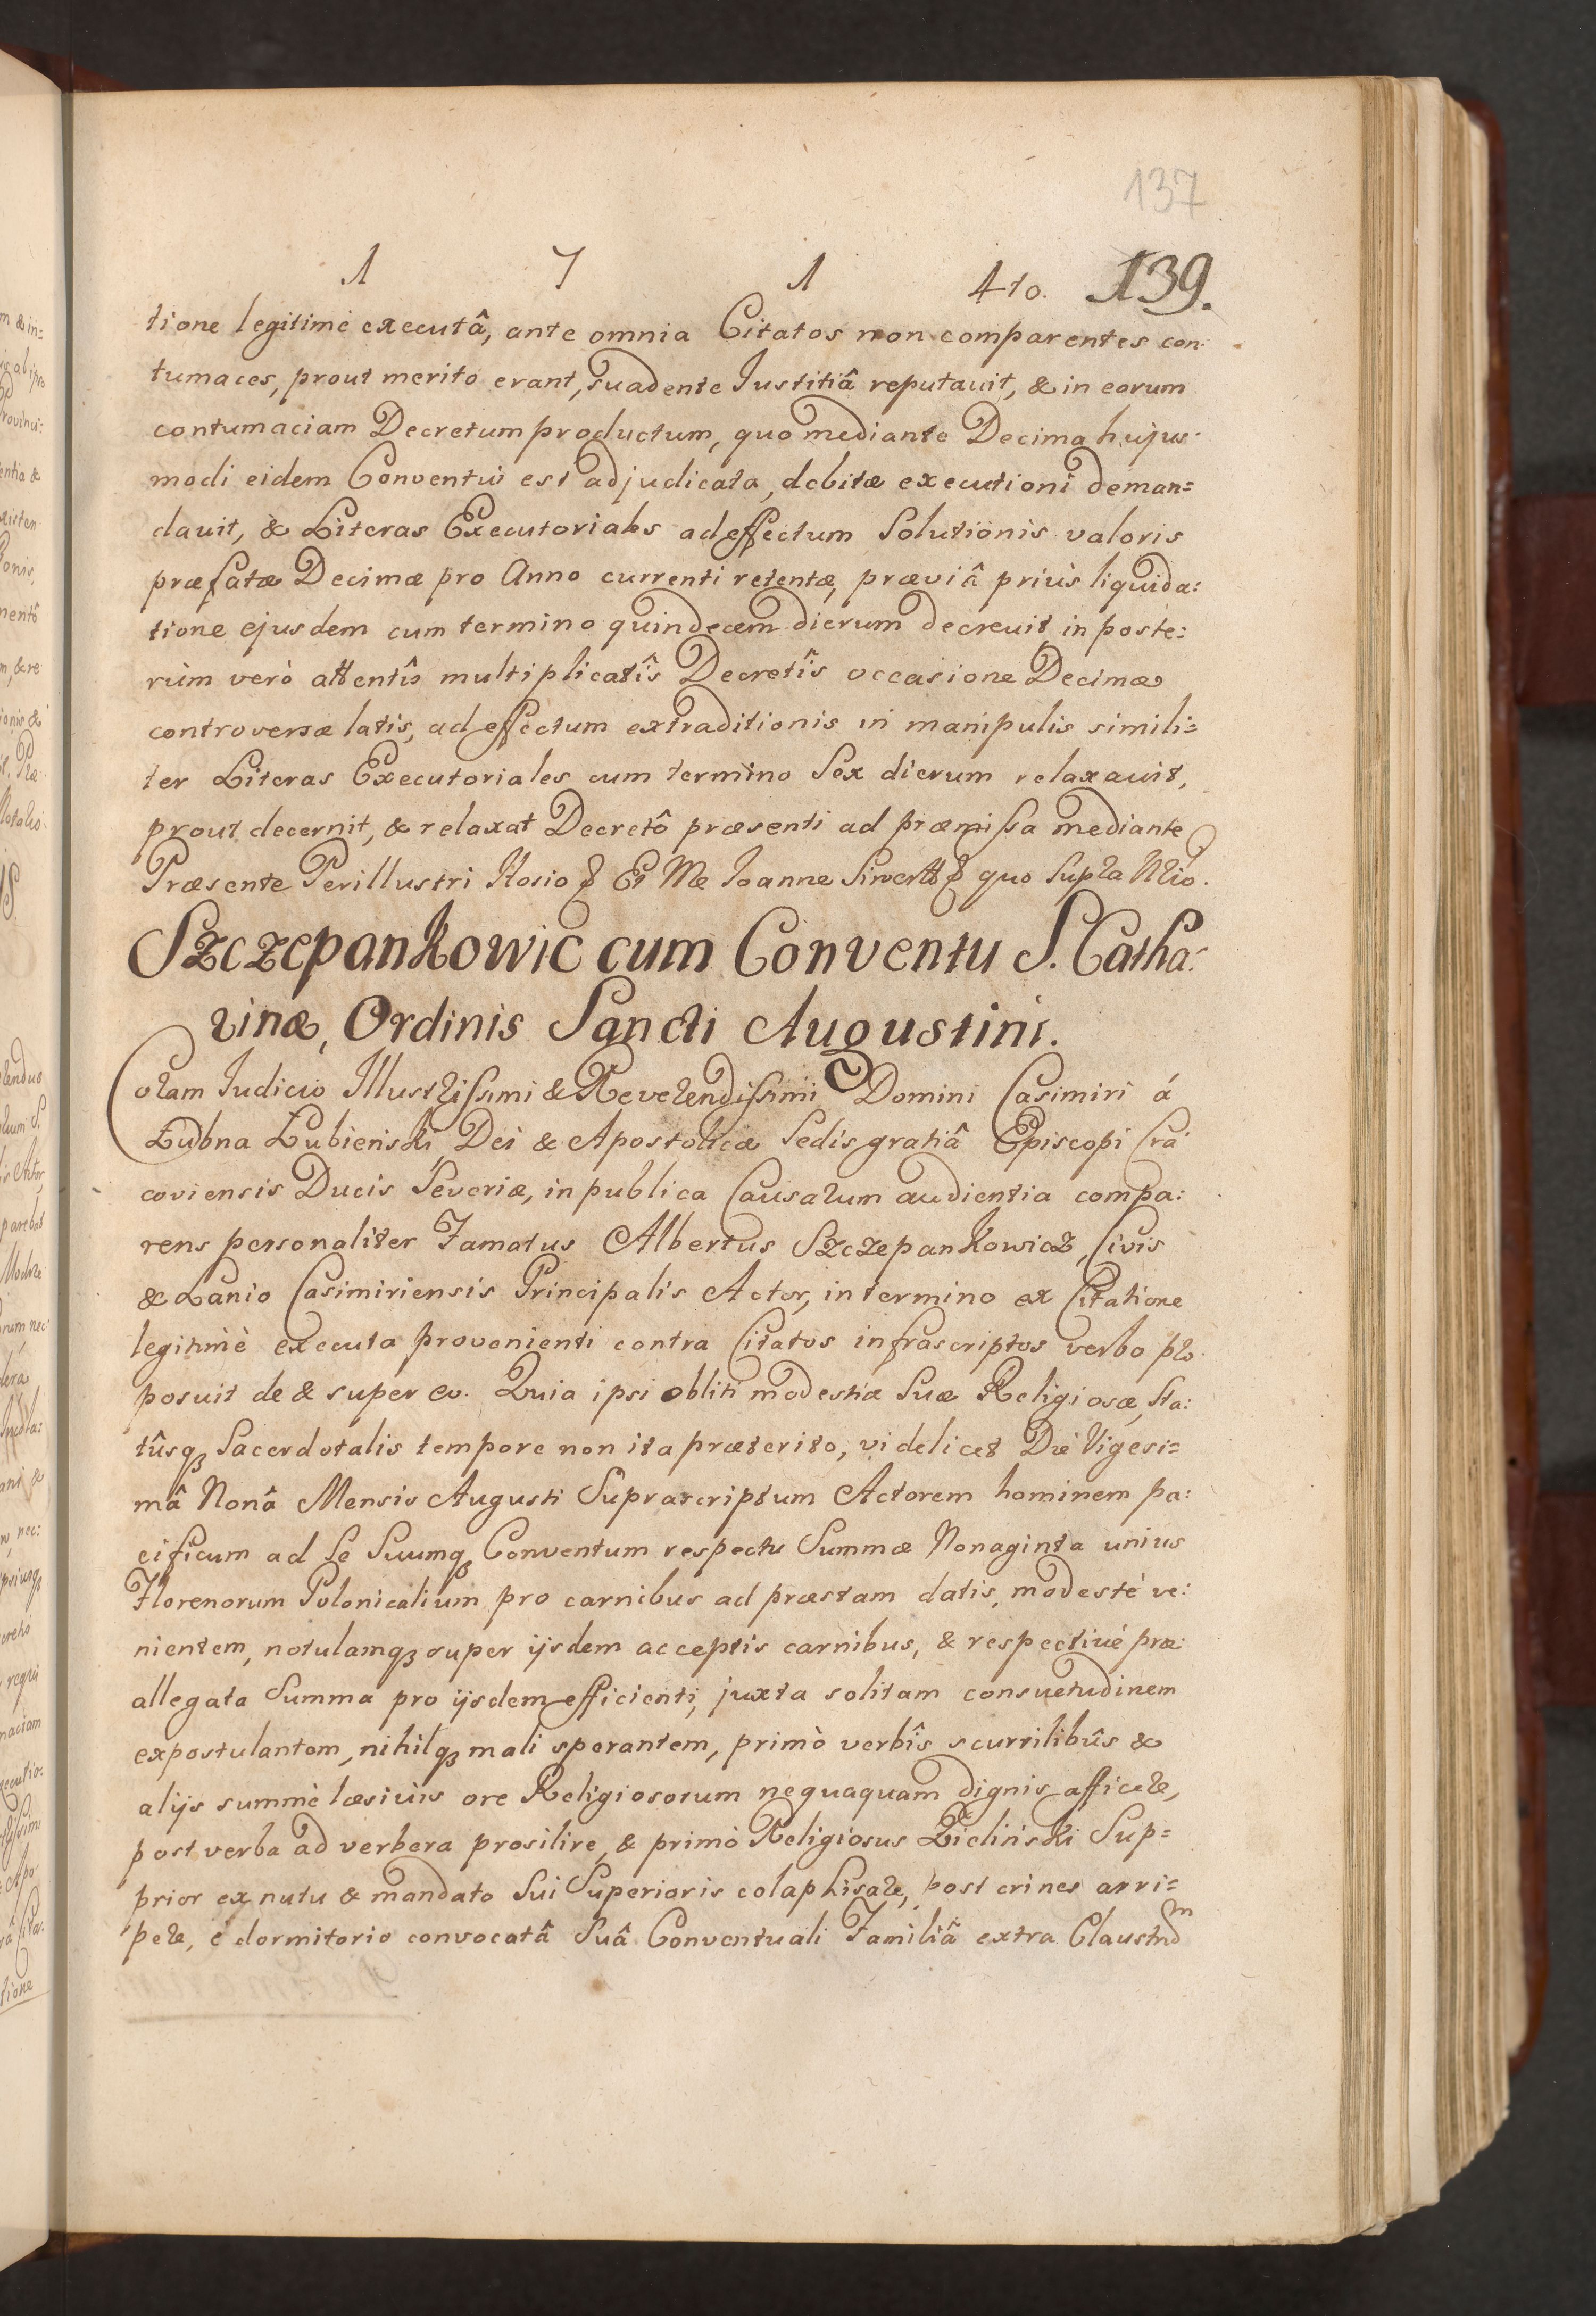 137
1 7 1 4to. 139.
tione legitimè executâ, ante omnia Citatos non comparentes con-
tumaces, prout merito erant, suadente Justitiâ reputavit, & in eorum
contumaciam Decretum productum, quo mediante Decima hujus-
modi eidem Conventui est adjudicata, debitæ executioni deman=
davit, & Literas Executoriales ad effectum Solutionis valoris
præfatæ Decimæ pro Anno currenti retentæ, præviâ priùs liquida:
tione ejusdem cum termino quindecem dierum decrevit, in poste:
rùm verò attentîs multiplicatîs Decretîs occasione Decimæ
controversæ latis, ad effectum extraditionis in manipulis simili=
ter Literas Executoriales cum termino Sex dierum relaxavit,
prout decernit, & relaxat Decretô præsenti ad præmissa mediante
Præsente Perillustri Hosio & Et Me Joanne quo Supra Nrio.
Szczepankowic cum Conventu S. Catha:
rinæ, Ordinis Sancti Augustini.
Coram Judicio Illustrissimi & Reverendissimi Domini Casimiri á
Łubna Łubieński, Dei & Apostolicæ Sedis gratiâ Episcopi Cra:
coviensis Ducis Severiæ, in publica Causarum audientia compa:
rens personaliter Famatus Albertus Szczepankowicz, Civis
& Lanio Casimiriensis Principalis Actor, in termino ex Citatione
legitimè executa provenienti contra Citatos infrascriptos verbo pro-
posuit de & super eo. Quia ipsi obliti modestiæ Suæ Religiosæ, sta:
tûsq3 Sacerdotalis tempore non ita præterito, videlicet Die Vigesi=
mâ Nonâ Mensis Augusti Suprascriptum Actorem hominem pa:
cificum ad Se Suumq3 Conventum respectu Summæ Nonaginta unius
Florenorum Polonicalium pro carnibus ad præstam datis, modestè ve:
nientem, notulamq3 super ijsdem acceptis carnibus, & respectivè præ:
allegata Summa pro ijsdem efficienti, juxta solitam consuetudinem
expostulantem, nihilq3 mali sperantem, primò verbîs scurrilibûs &
alijs summè læsivis ore Religiosorum nequaquam dignis afficere,
post verba ad verbera prosilire, & primò Religiosus Zieliński Sup=
prior ex nutu & mandato Sui Superioris colaphisare, post crines arri=
pere, é dormitorio convocatâ Suâ Conventuali Familiâ extra Claustrum